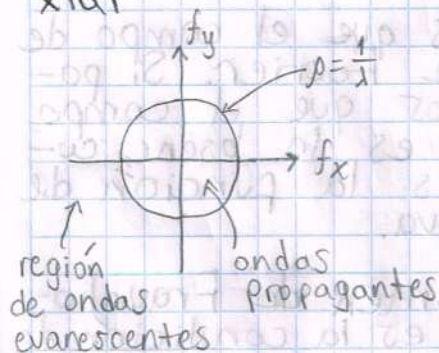 fy
ρ = 1/λ
fx
región
de ondas
evanescentes
ondas
propagantes